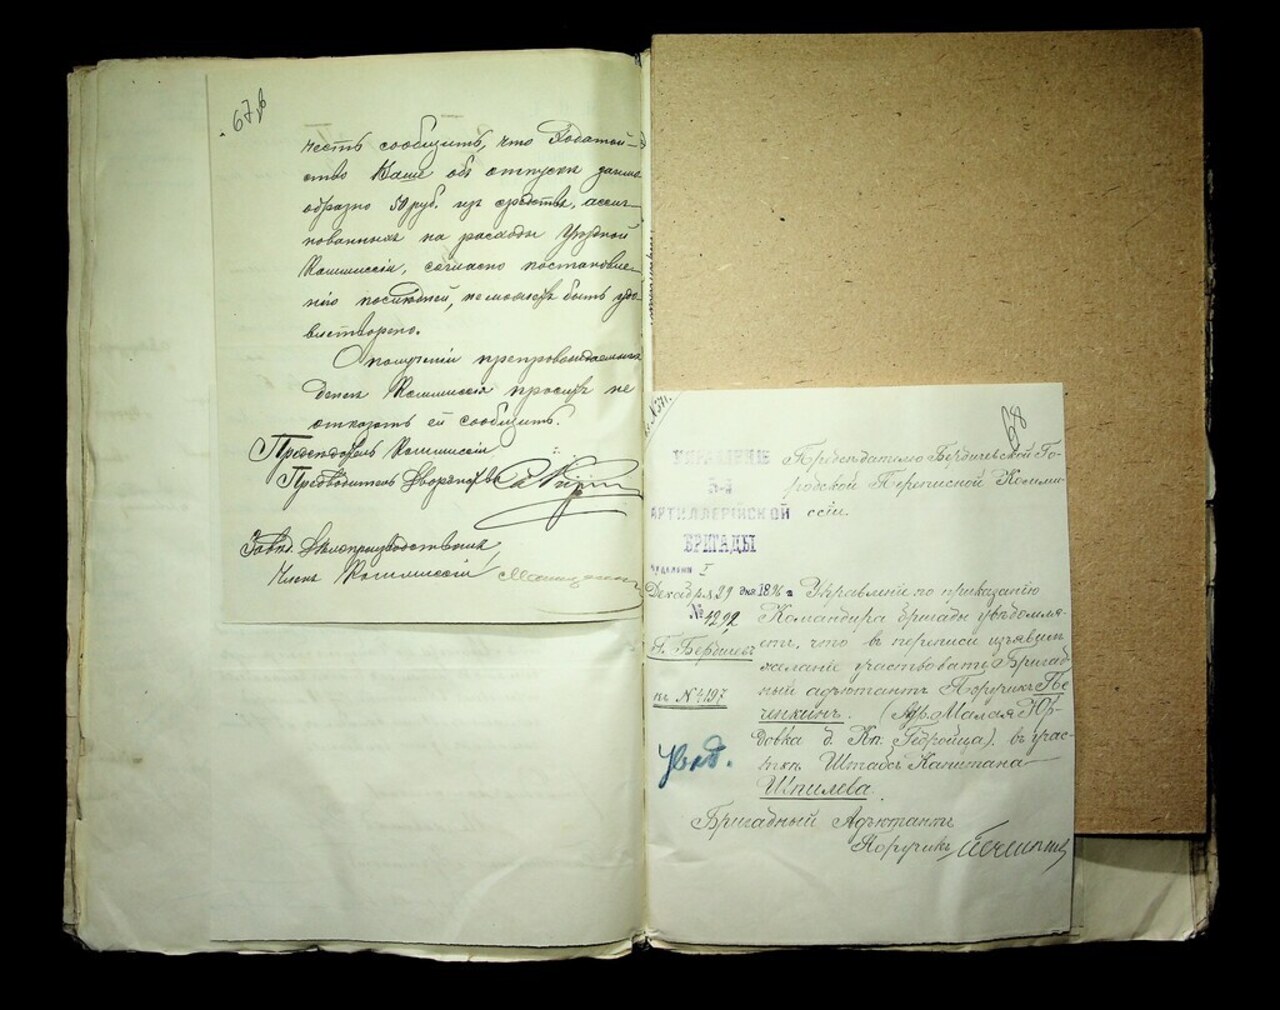 67 в
честь сообщить, что Ходатай-
ство Ваше об отпуске
50 руб. из средствъ, ассиг-
нованныхъ на расходы Уѣздной
Коммиссіи, согласно постановле-
нію послѣдней, не можетъ быть удо-
влетворено.
О полученіи препровождаемыхъ
денегъ Коммиссія проситъ не
отказать ей сообщить.
Предсѣдатель Коммиссіи
Предводитель Дворянства
Завѣд. Дѣлопроизводствомъ,
Членъ Коммиссіи
№ 371.
68
УПРАВЛЕНІЕ
5-й
АРТИЛЛЕРІЙСКОЙ
БРИГАДЫ
Отдѣленіе I
Декабря 29 дня 1896 г.
№ 4292
Г. Бердичевъ
на № 4197
Предсѣдателю Бердичевской Го-
родской Переписной Комми-
ссіи.
Управленіе по приказанію
Командира бригады увѣдомля-
етъ, что въ переписи изъявилъ
желаніе участвовать Бригад-
ный адъютантъ Поручикъ Пе-
чинкинъ. (Адр. Малая Юр-
довка д. Кн. Гедройца). въ учас-
ткѣ Штабсъ Капитана
Шпилева.
Бригадный Адъютантъ
Поручикъ Печинкинъ